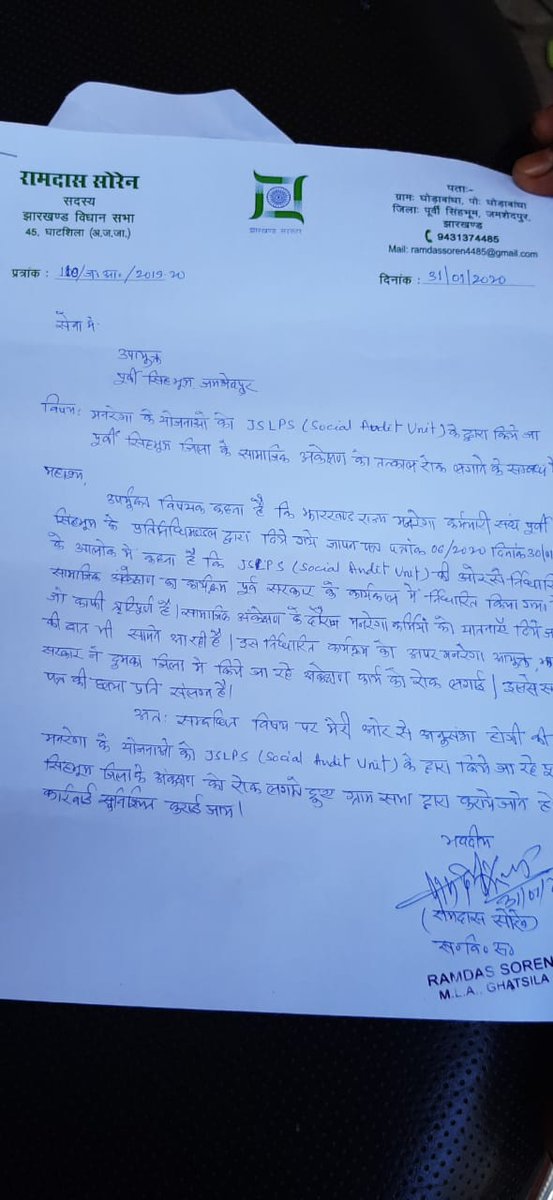 रामदास सोरेन
सदस्य
झारखण्ड विधान सभा
45, घाटशिला (अ.ज.जा.)
झारखण्ड सरकार
पताः-
ग्रामः घोड़ाबांधा, पोः घोड़ाबांधा
जिलाः पूर्वी सिंहभूम, जमशेदपुर,
झारखण्ड
9431374485
Mail: ramdassoren4485@gmail.com
पत्रांक : /2019-20
दिनांक : 31/01/2020
सेवा में
उपायुक्त
पूर्वी सिंहभूम, जमशेदपुर
विषय: मनरेगा के योजनाओं को JSLPS (Social Audit Unit) के द्वारा किये जा
पूर्वी सिंहभूम जिला के सामाजिक अंकेक्षण को तत्काल रोक लगाने के सम्बन्ध
महाशय,
उपर्युक्त विषयक कहना है कि झारखण्ड राज्य मनरेगा कर्मचारी संघ पूर्वी
सिंहभूम के प्रतिनिधिमंडल द्वारा दिये गये ज्ञापन पत्र पत्रांक 06/2020 दिनांक 30/01
के आलोक में कहना है कि JSLPS (Social Audit Unit) की ओर से निर्धारित
सामाजिक अंकेक्षण का कार्यक्रम पूर्व सरकार के कार्यकाल में निर्धारित किया गया
जो काफी त्रुटिपूर्ण है। सामाजिक अंकेक्षण के दौरान मनरेगा कर्मियों को यातनाएँ दिये
की बात भी सामने आ रही है। उस निर्धारित कार्यक्रम को अपर मनरेगा आयुक्त,
सरकार ने दुमका जिला में किये जा रहे अंकेक्षण कार्य को रोक लगाई। इससे
पत्र की छाया प्रति संलग्न है।
अतः सम्बन्धित विषय पर मेरी ओर से अनुशंसा होगी की
मनरेगा के योजनाओं को JSLPS (Social Audit Unit) के द्वारा किये जा रहे
सिंहभूम जिला के अंकेक्षण को रोक लगाते हुए ग्राम सभा द्वारा कराये जाने
कार्रवाई सुनिश्चित कराई जाय।
भवदीय
31/01/
(रामदास सोरेन)
स०वि०स०
RAMDAS SOREN
M.L.A., GHATSILA